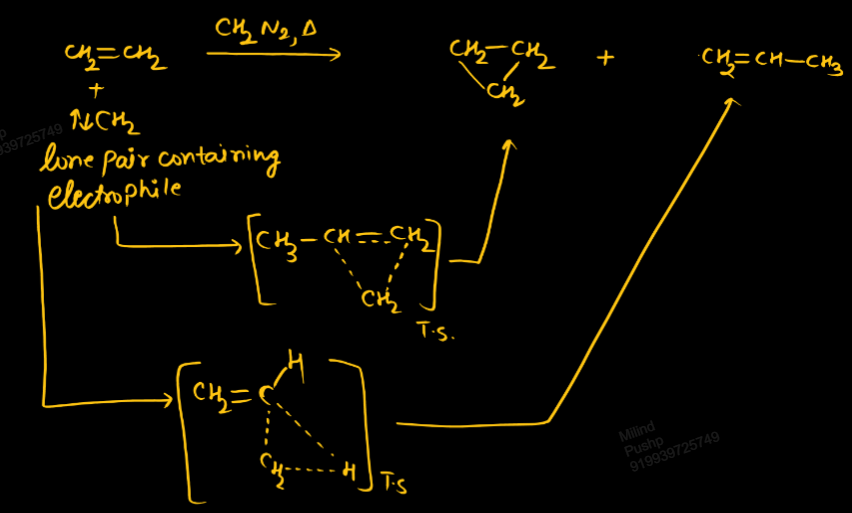 CH2=CH2 CH2N2, Δ CH2-CH2 CH2 + CH2=CH-CH3
+
↑↓CH2
lone pair containing
electrophile
CH3-CH=CH2
CH2
T.S.
H
CH2=C
CH2 H T.S
Milind
Pushp
919939725749
p
939725749